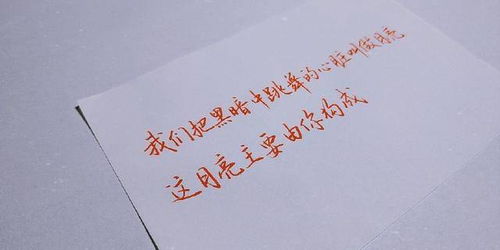 我们把黑暗中跳舞的心脏叫做月亮
这月亮主要由你构成